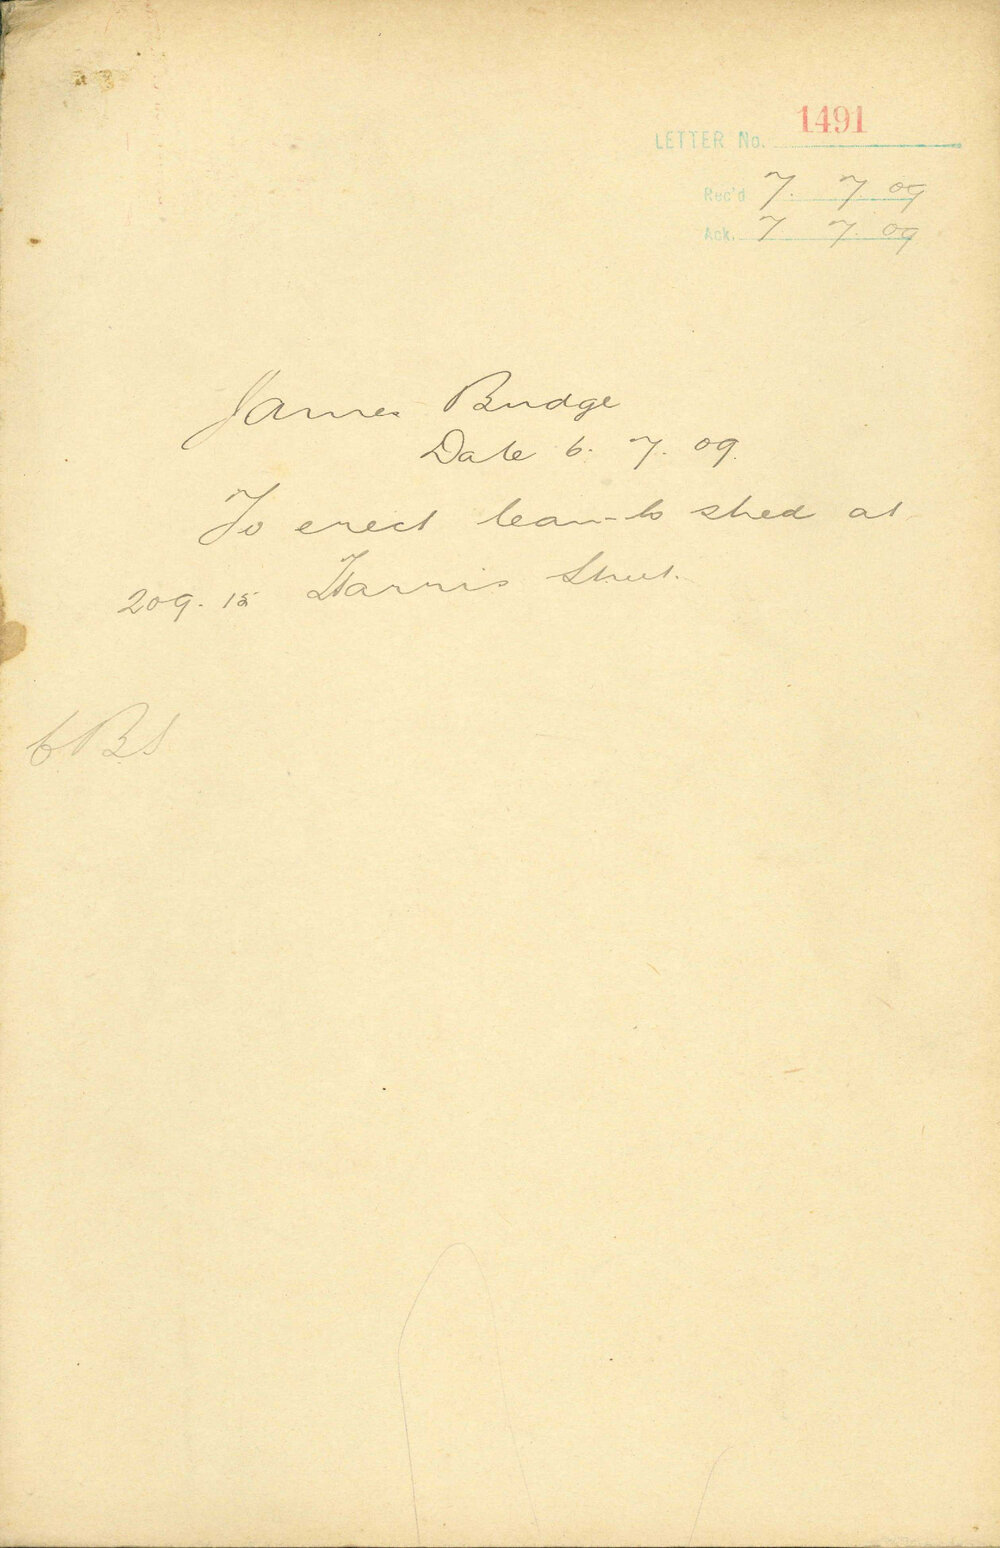 LETTER No. 1491
Rec'd 7. 7 09
Ack. 7 7. 09
James Budge
Date 6. 7. 09.
To erect lean-to shed at
209. 15 Harris Street.